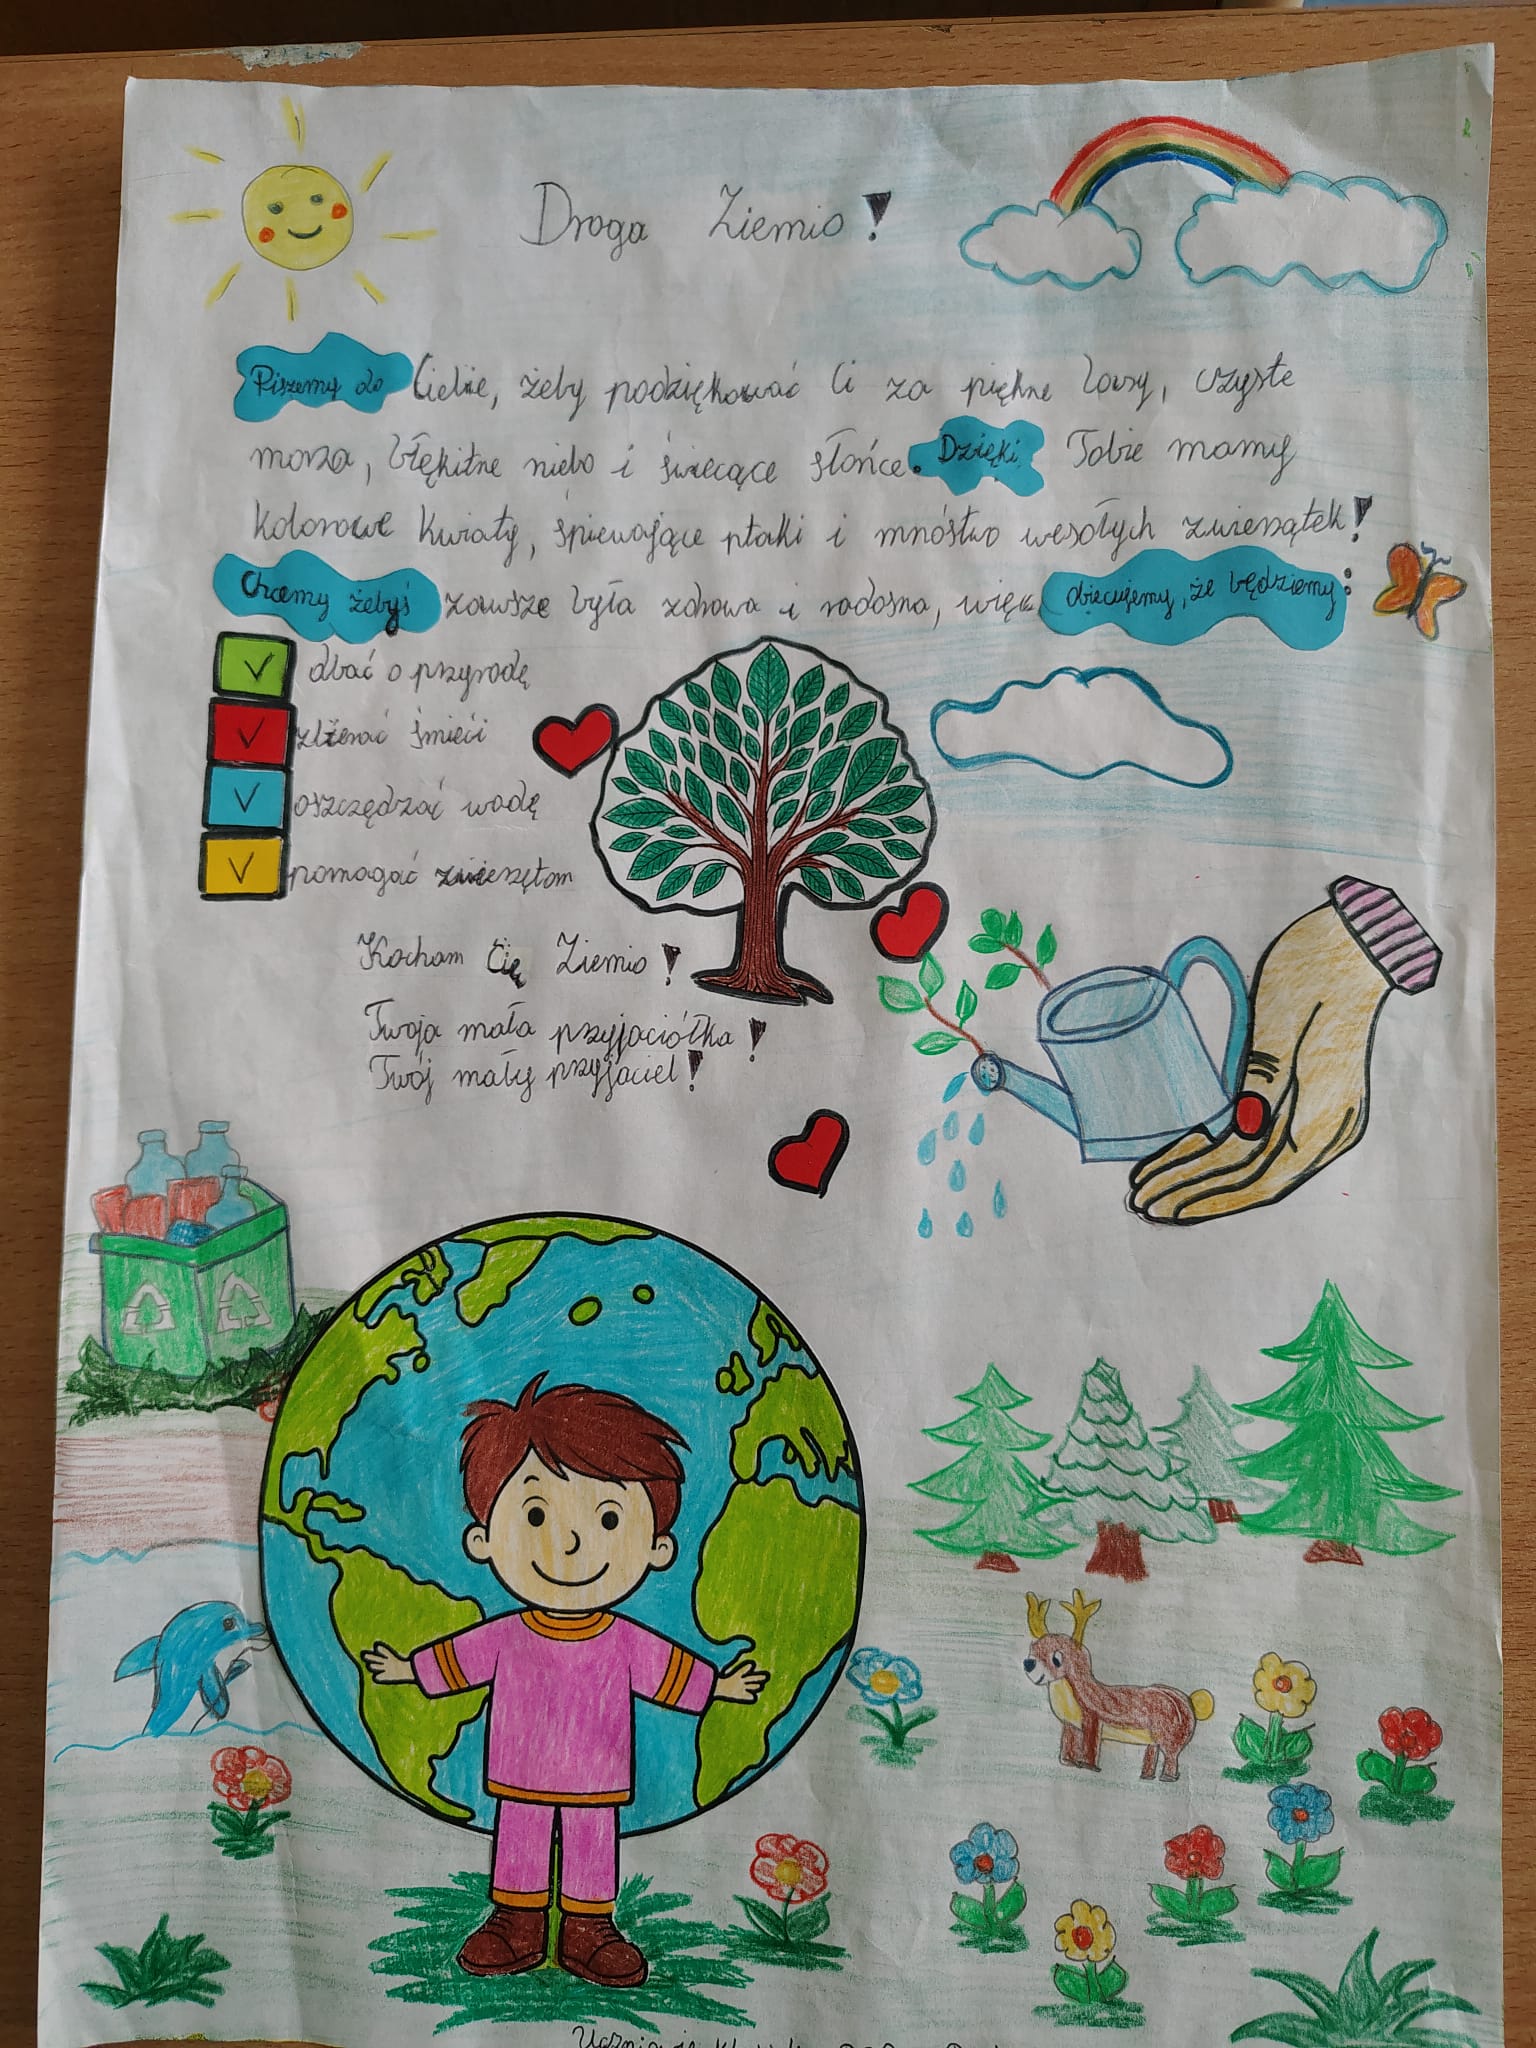 Droga Ziemio!
Piszemy do Ciebie, żeby podziękować Ci za piękne lasy, czyste
morza, błękitne niebo i świecące słońce. Dzięki Tobie mamy
kolorowe kwiaty, śpiewające ptaki i mnóstwo wesołych zwierzątek!
Chcemy żebyś zawsze była zdrowa i radosna, więc obiecujemy, że będziemy:
dbać o przyrodę
zbierać śmieci
oszczędzać wodę
pomagać zwierzętom
Kocham Cię Ziemio!
Twoja mała przyjaciółka!
Twój mały przyjaciel!
Uczniowie